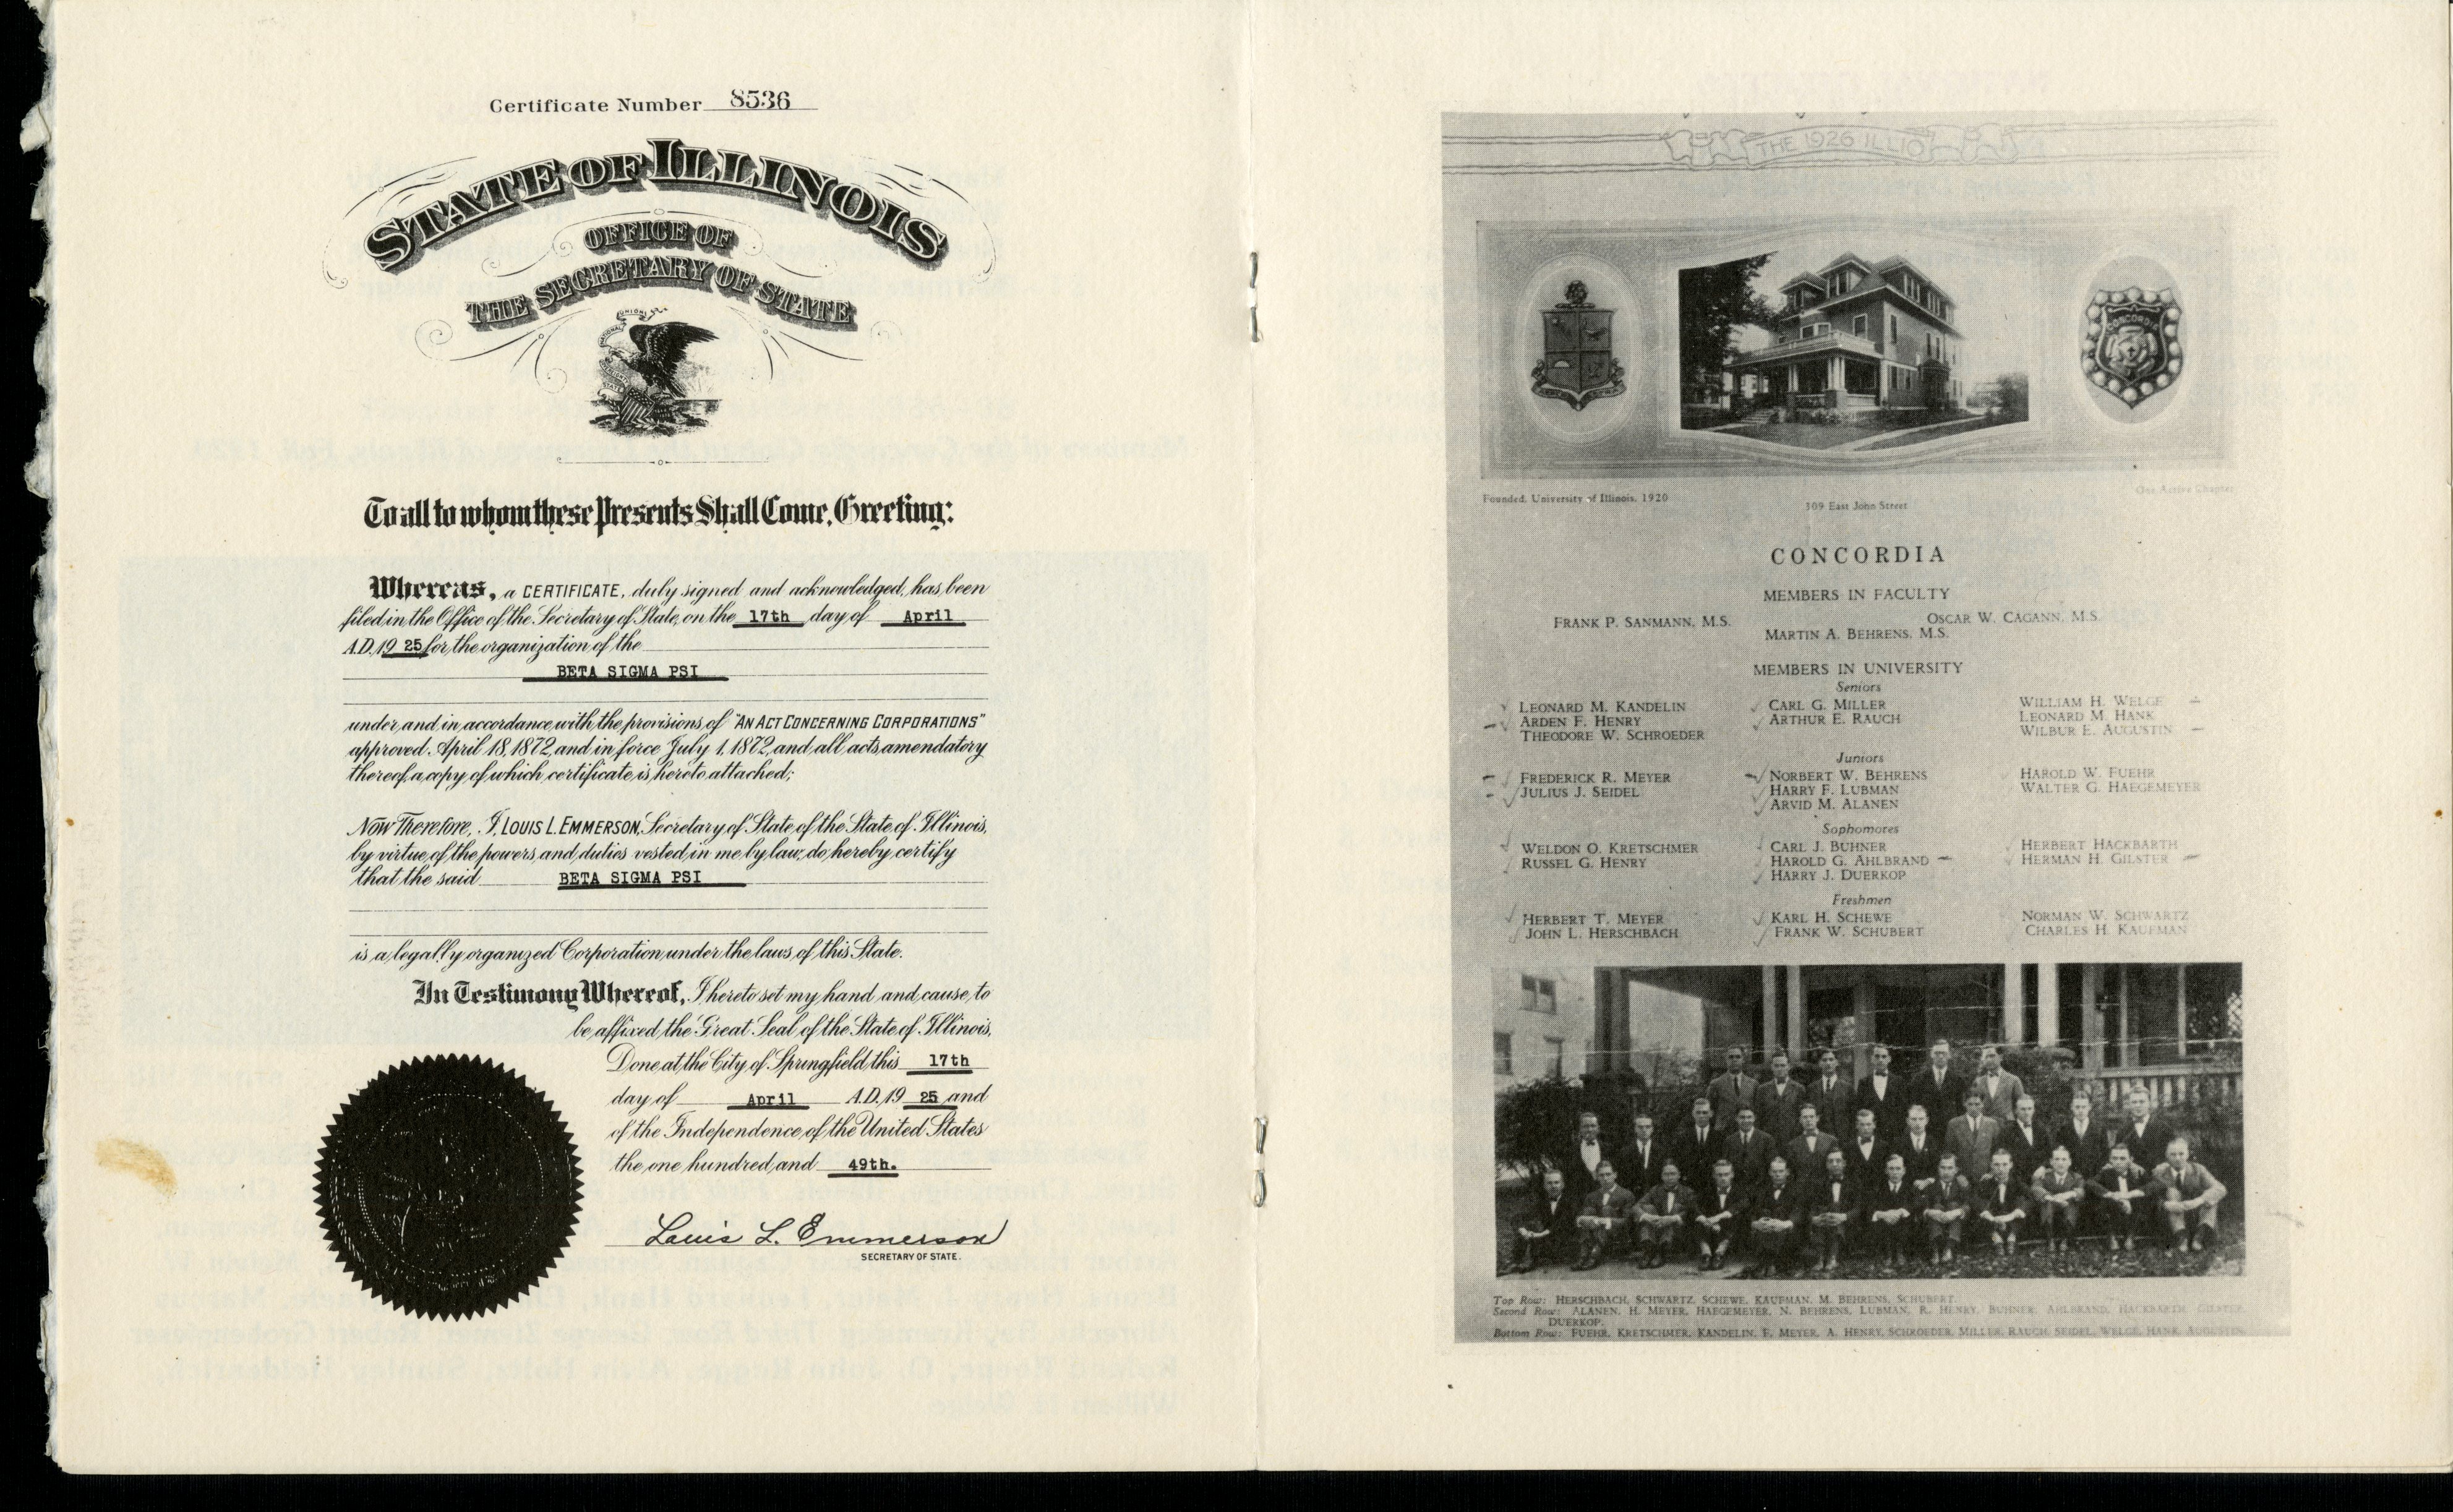 Certificate Number 8536
STATE OF ILLINOIS
OFFICE OF
THE SECRETARY OF STATE
To all to whom these Presents Shall Come, Greeting:
Whereas, a CERTIFICATE, duly signed and acknowledged, has been
filed in the Office of the Secretary of State, on the 17th day of April
A.D. 19 25 for the organization of the
BETA SIGMA PSI
under and in accordance with the provisions of "AN ACT CONCERNING CORPORATIONS"
approved April 18, 1872, and in force July 1, 1872, and all acts amendatory
thereof, a copy of which certificate is hereto attached;
Now Therefore, I, LOUIS L. EMMERSON, Secretary of State of the State of Illinois,
by virtue of the powers and duties vested in me by law, do hereby certify
that the said BETA SIGMA PSI
is a legally organized Corporation under the laws of this State.
In Testimony Whereof, I hereto set my hand and cause to
be affixed the Great Seal of the State of Illinois,
Done at the City of Springfield this 17th
day of April A.D. 19 25 and
of the Independence of the United States
the one hundred and 49th.
Louis L. Emmerson
SECRETARY OF STATE.
THE 1926 ILLIO
CONCORDIA
Founded, University of Illinois, 1920
309 East John Street
One Active Chapter
CONCORDIA
MEMBERS IN FACULTY
FRANK P. SANMANN, M.S. OSCAR W. CAGANN, M.S.
MARTIN A. BEHRENS, M.S.
MEMBERS IN UNIVERSITY
Seniors
LEONARD M. KANDELIN CARL G. MILLER WILLIAM H. WELGE
ARDEN F. HENRY ARTHUR E. RAUCH LEONARD M. HANK
THEODORE W. SCHROEDER WILBUR E. AUGUSTIN
Juniors
FREDERICK R. MEYER NORBERT W. BEHRENS HAROLD W. FUEHR
JULIUS J. SEIDEL HARRY F. LUBMAN WALTER G. HAEGEMEYER
ARVID M. ALANEN
Sophomores
WELDON O. KRETSCHMER CARL J. BUHNER HERBERT HACKBARTH
RUSSEL G. HENRY HAROLD G. AHLBRAND HERMAN H. GILSTER
HARRY J. DUERKOP
Freshmen
HERBERT T. MEYER KARL H. SCHEWE NORMAN W. SCHWARTZ
JOHN L. HERSCHBACH FRANK W. SCHUBERT CHARLES H. KAUFMAN
Top Row: HERSCHBACH, SCHWARTZ, SCHEWE, KAUFMAN, M. BEHRENS, SCHUBERT.
Second Row: ALANEN, H. MEYER, HAEGEMEYER, N. BEHRENS, LUBMAN, R. HENRY, BUHNER, AHLBRAND, HACKBARTH, GILSTER,
DUERKOP.
Bottom Row: FUEHR, KRETSCHMER, KANDELIN, F. MEYER, A. HENRY, SCHROEDER, MILLER, RAUCH, SEIDEL, WELGE, HANK, AUGUSTIN.